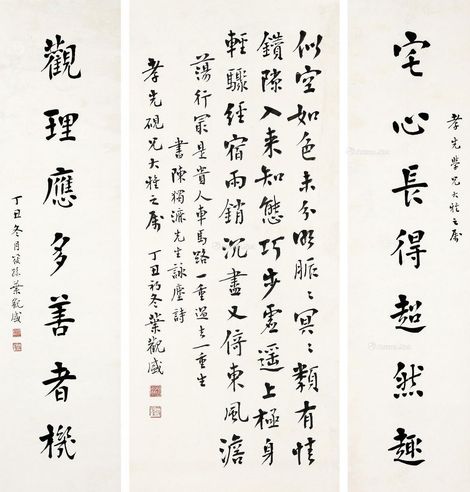 孝先學兄大雅之屬
宅心長得超然趣
似空如色未分明脈〻冥〻類有情
鑽隙入来知態巧步虛遥上極身
輕驟經宿雨銷沉盡又倚東風澹
蕩行最是貴人車馬路一重過去一重生
書陳獨漉先生詠塵詩
孝先硯兄大雅之屬 丁丑初冬葉觀盛
觀理應多善者機
丁丑冬月 葉觀盛